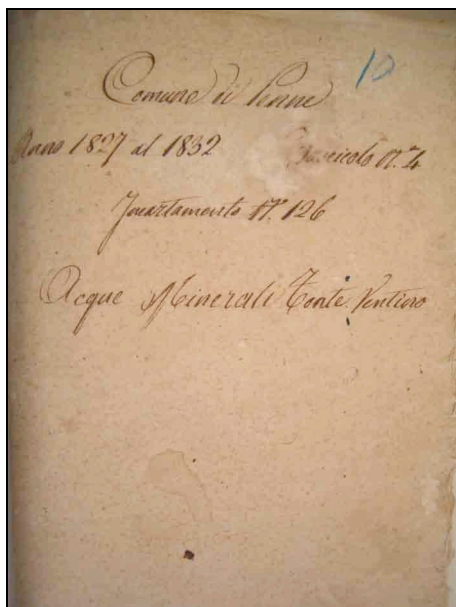 10
Comune di Penne
Anno 1827 al 1832 Fascicolo N. 4
N. 126
Acque Minerali Fonte Ventina